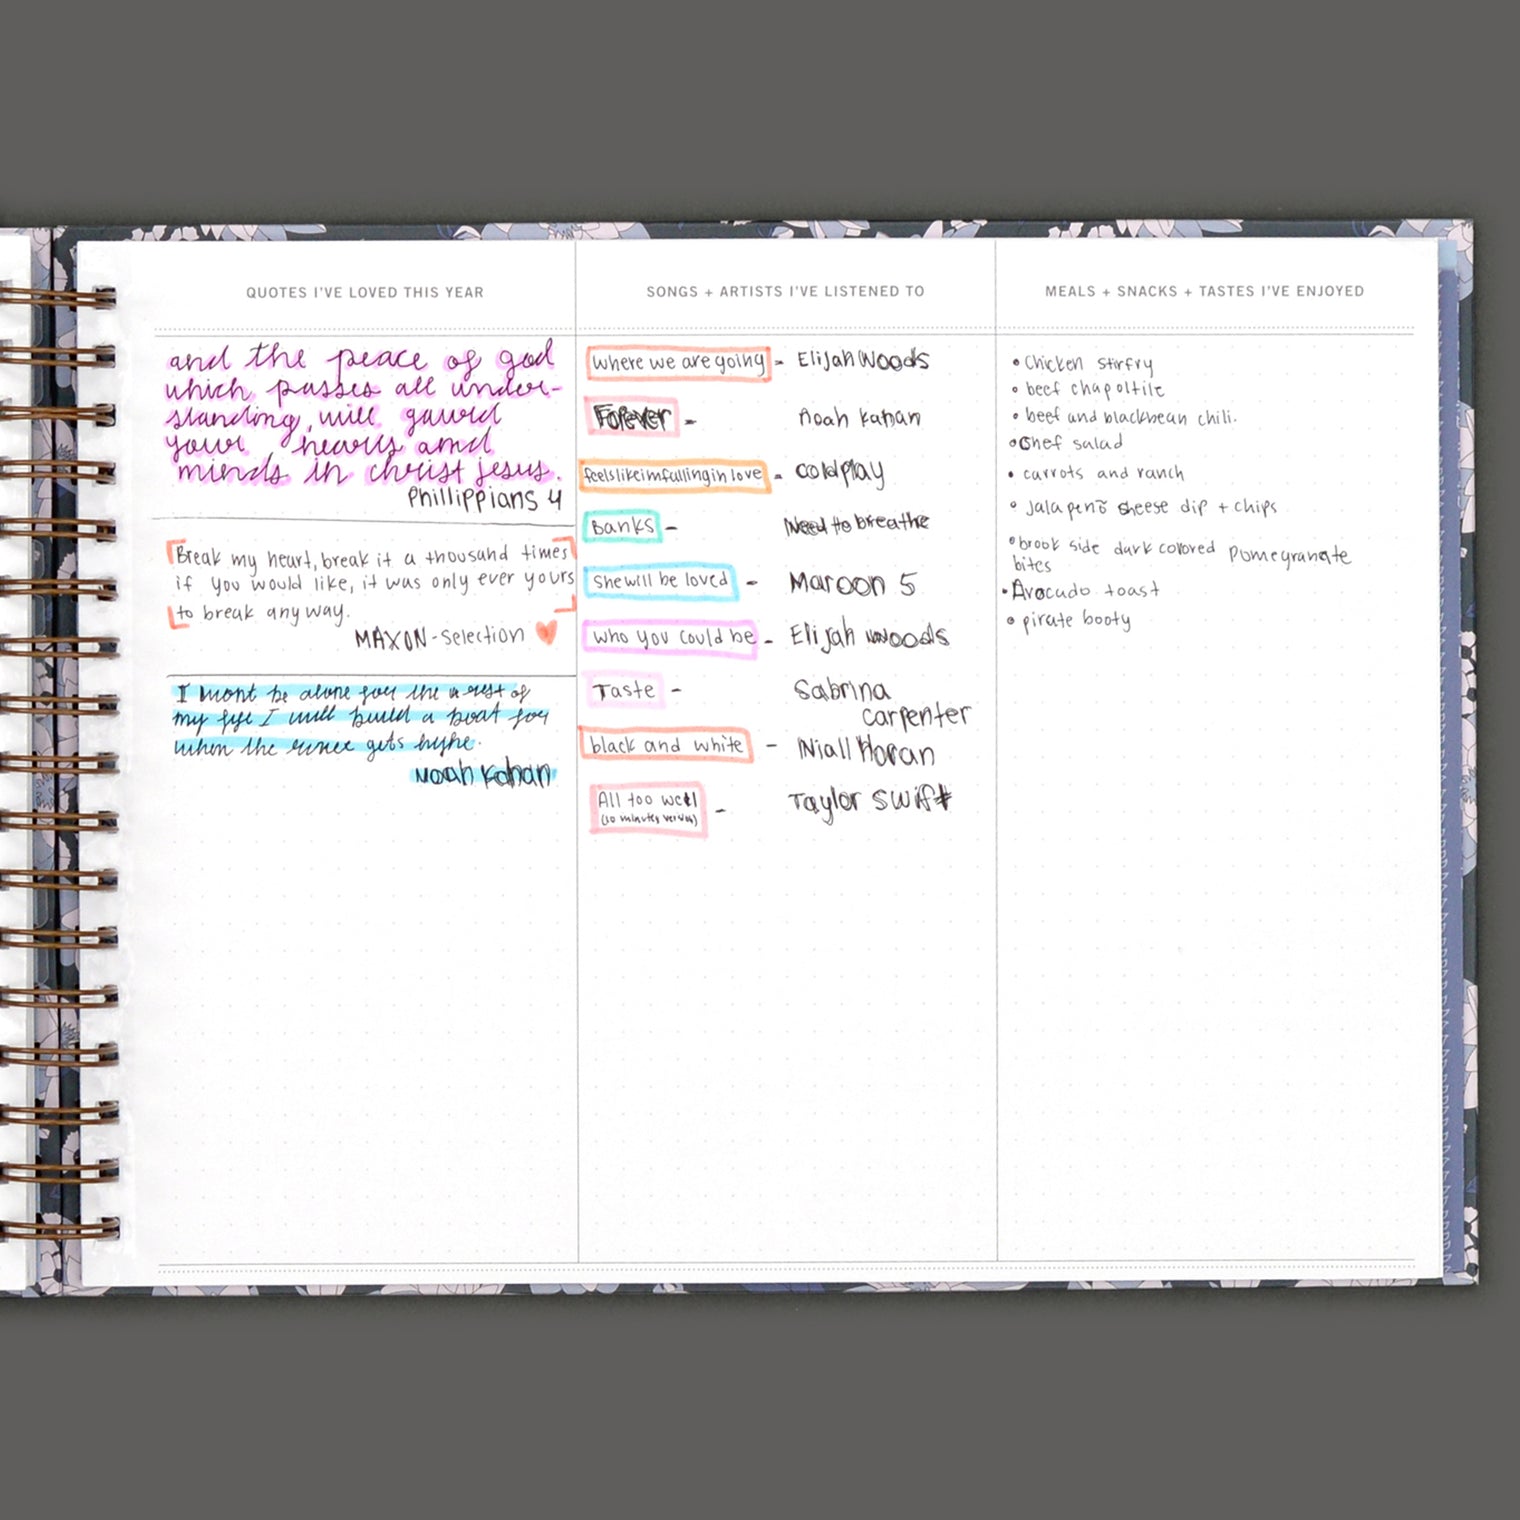 QUOTES I'VE LOVED THIS YEAR
and the peace of god
which passes all under-
standing, will gaurd
your hearts and
minds in christ jesus.
Phillippians 4
Break my heart, break it a thousand times
if you would like, it was only ever yours
to break any way.
MAXON-selection
I wont be alone for the rest of
my lye I will build a boat for
when the river gets hyhe.
Noah Kahan
SONGS + ARTISTS I'VE LISTENED TO
where we are going - Elijah Woods
Forever - Noah Kahan
feelslikeimfallinginlove - coldplay
Banks - Need to breathe
she will be loved - Maroon 5
who you could be - Elijah woods
Taste - Sabrina
carpenter
black and white - Niall Horan
All too well - Taylor Swift
(10 minutes version)
MEALS + SNACKS + TASTES I'VE ENJOYED
• Chicken stirfry
• beef chapoltile
• beef and blackbean chili.
• Chef salad
• carrots and ranch
• Jalapenõ sheese dip + chips
• brook side dark colored pomegranate
bites
• Avocado toast
• pirate booty